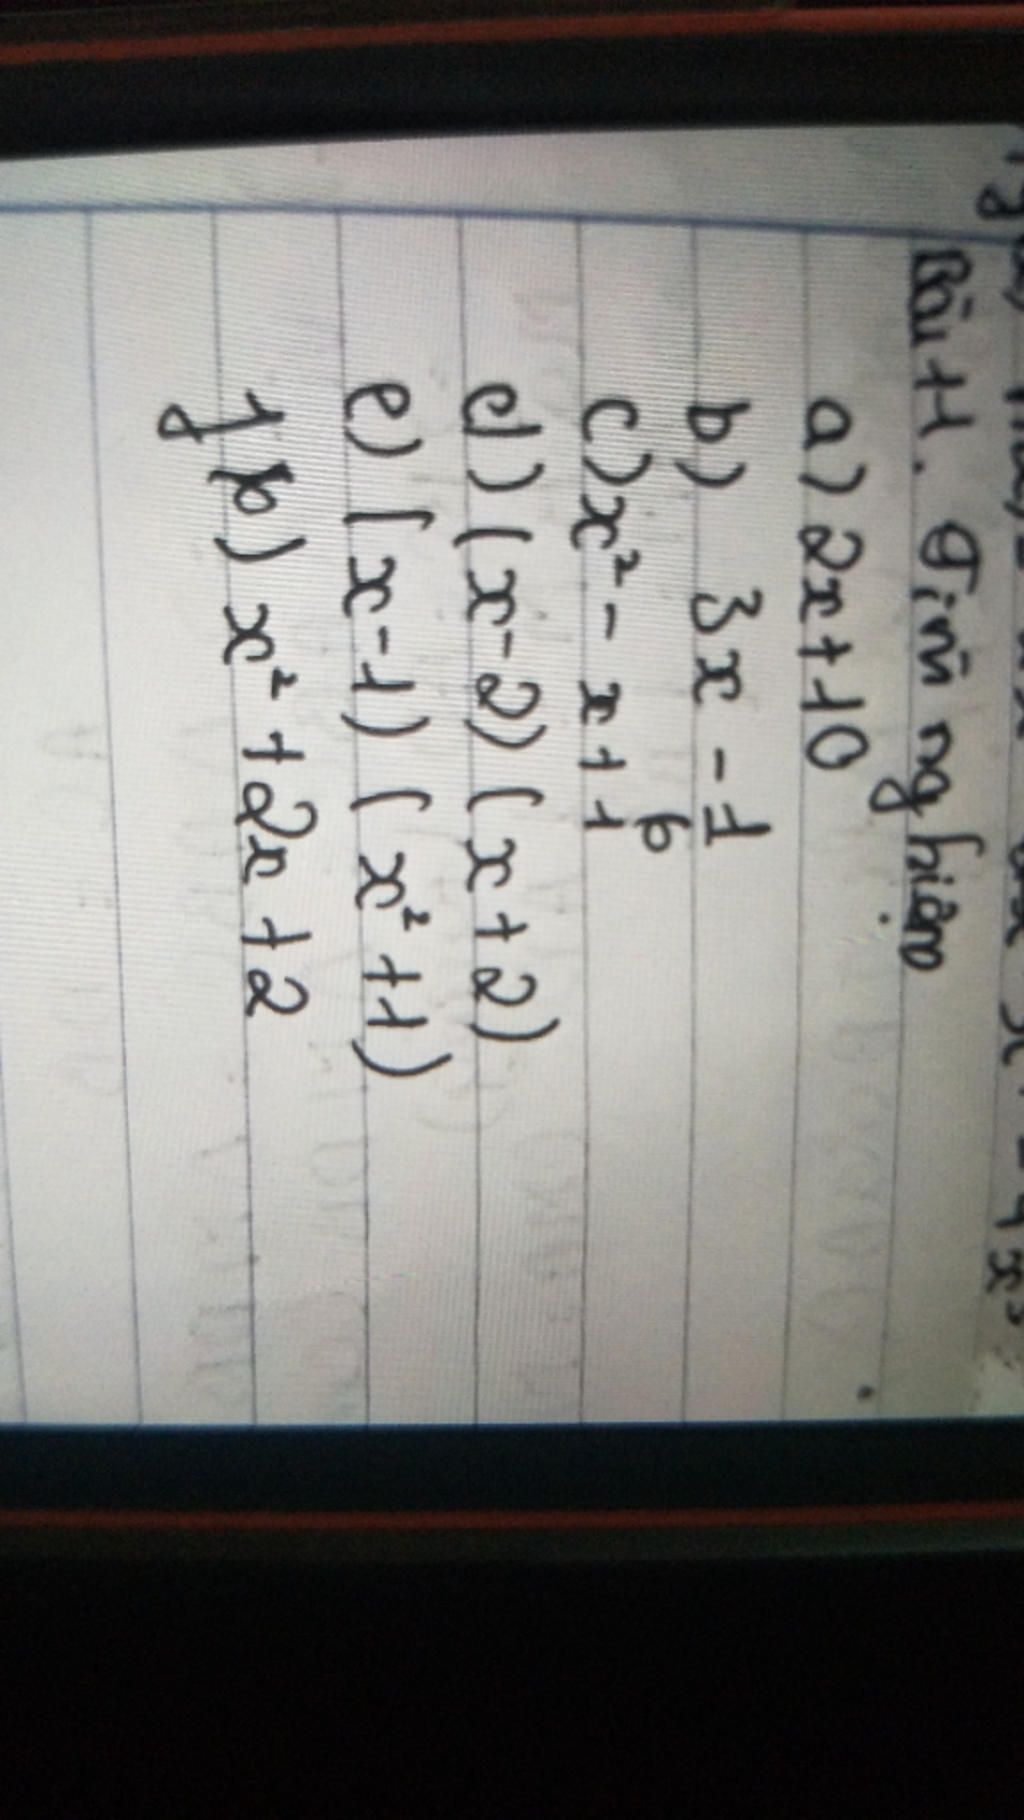 Bài 11. Tìm nghiệm
a) 2x+10
b) 3x - 1/6
c) x² - x + 1
d) (x-2) (x+2)
e) (x-1) (x²+1)
f) x² +2x +2